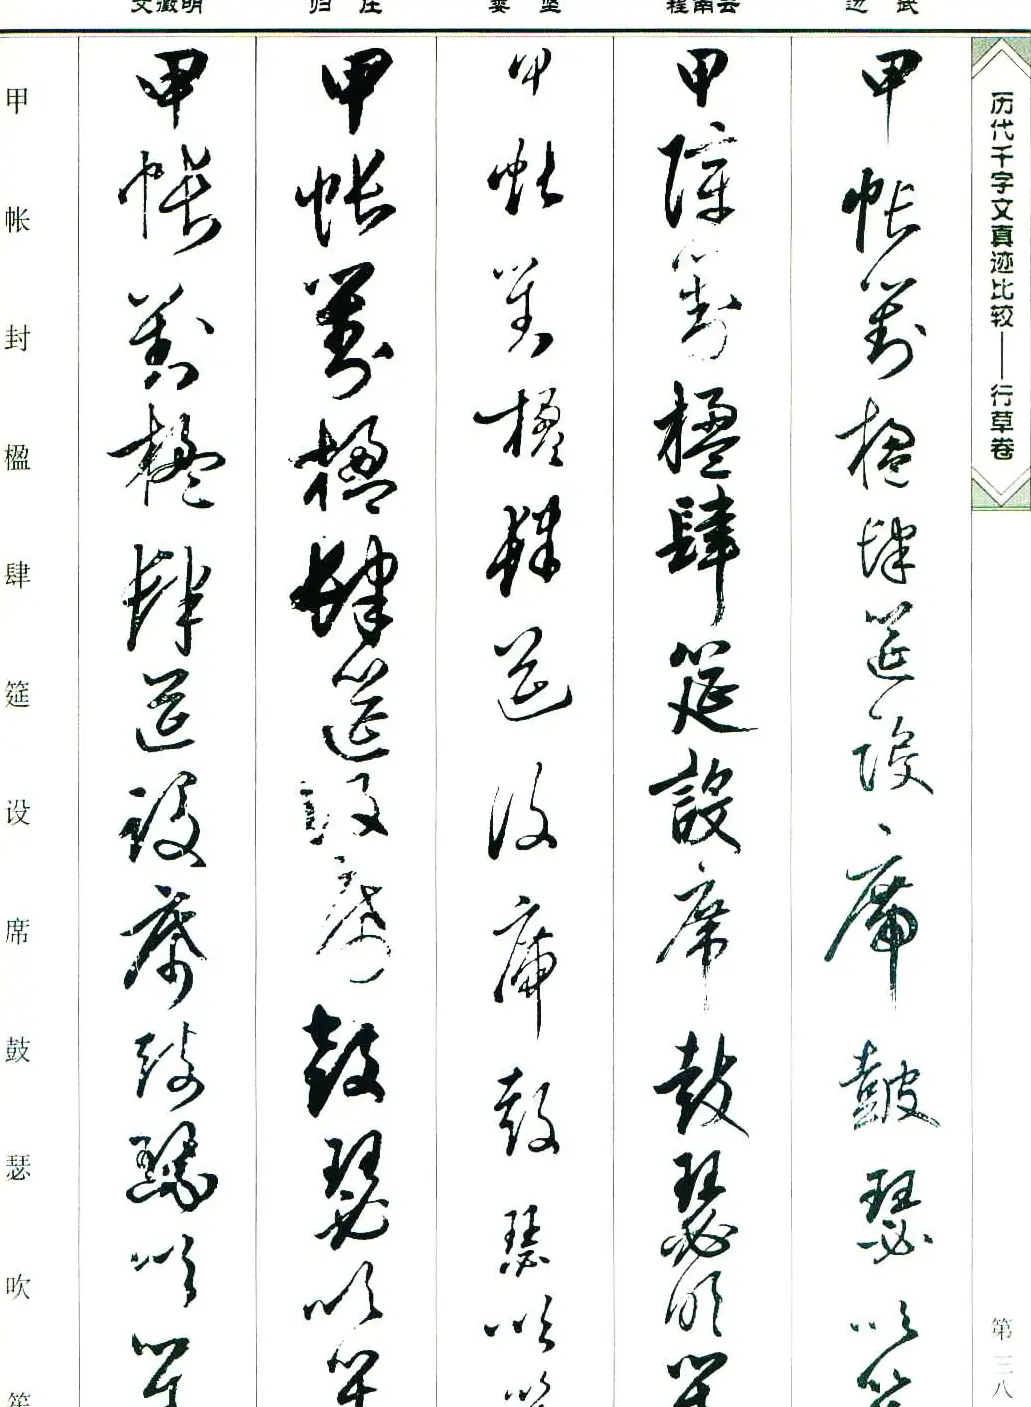 边武
程南云
娄坚
归庄
文徵明
历代千字文真迹比较——行草卷
第三八
甲帳對楹肆筵設席鼓瑟吹笙
甲帳對楹肆筵設席鼓瑟吹笙
甲帳對楹肆筵設席鼓瑟吹
甲帳對楹肆筵設席鼓瑟吹笙
甲帳對楹肆筵設席鼓瑟吹笙
甲帐封楹肆筵设席鼓瑟吹笙